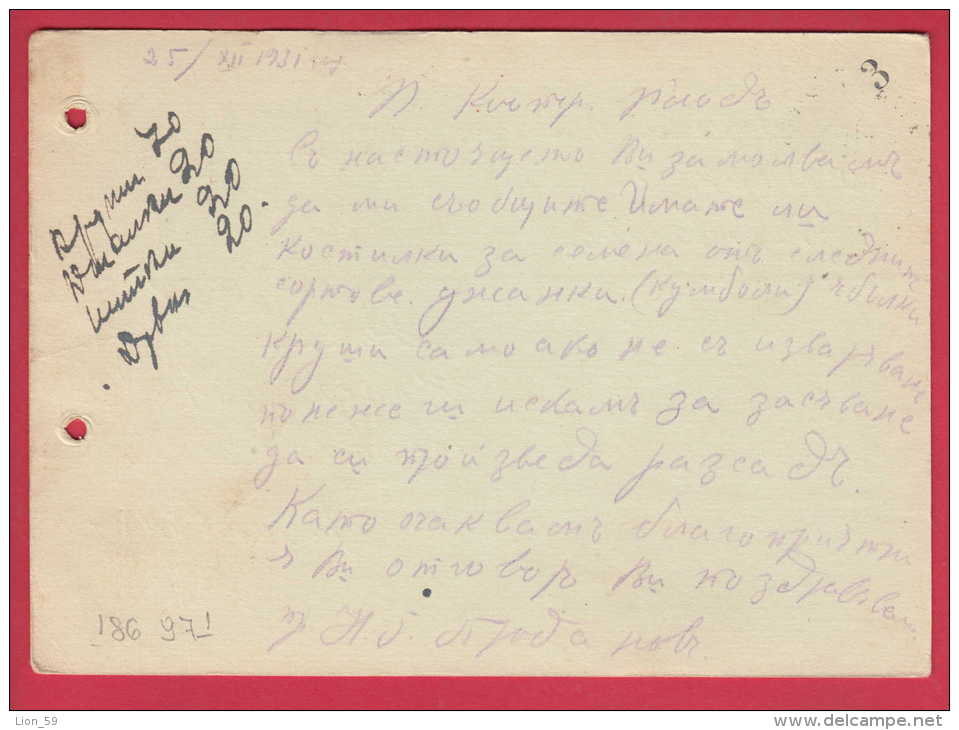 25/XII 1931
3
Съ настоящетъ Ви замолвамъ
да ми съобщите Имате ли
костилки за семена отъ следните
сортове. джанки. (кумболи) ябълки
круши само ако не съ изварявани
понеже ги искамъ за засѣване
да си произведа разсадъ.
Като очаквамъ благоприятни
я Ви отговоръ Ви поздравявам.
круши 70
Джанки 20
20
20.
186 971
Lion_59
www.delcampe.net